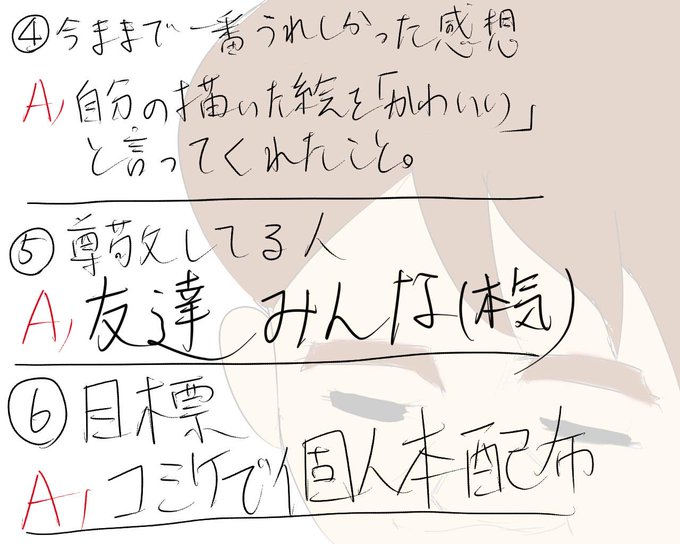 ④今ままで一番うれしかった感想
A,自分の描いた絵を「かわいい」
と言ってくれたこと。
⑤尊敬してる人
A,友達みんな(本気)
⑥目標
A,コミケで個人本配布